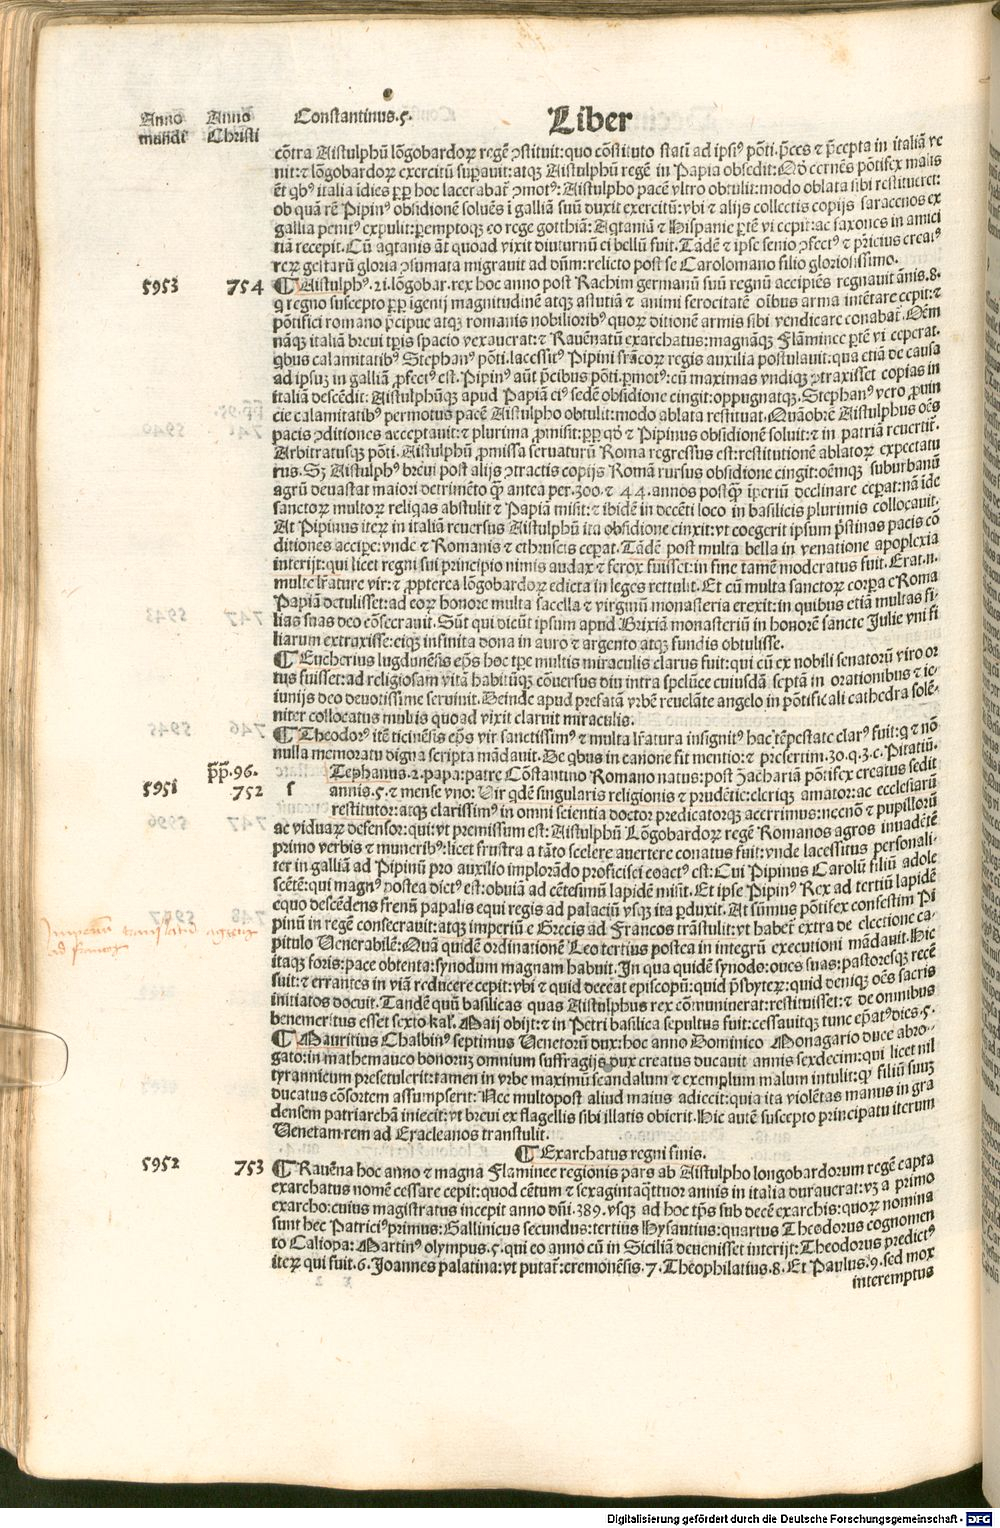 Anno mundi
Anno Christi
Constantinus.5.
Liber
cõtra Aistulphũ lõgobardoꝝ regẽ ꝯstituit:quo cõstituto statĩ ad ipsiꝰ põti.p̃ces ⁊ p̃cepta in italiã ve
nit:⁊ lõgobardoꝝ exercitũ suꝑauit:atqꝫ Aistulphũ regẽ in Papia obsedit:Qđ cernẽs põtifex malis
ẽt qbꝰ italia ĩdies ꝓꝑ hoc lacerabat̃ ꝯmotꝰ:Aistulpho pacẽ vltro obtulit:modo oblata sibi restitueret:
ob quã rẽ Pipinꝰ obsidionẽ soluẽs ĩ galliã suũ duxit exercitũ:vbi ⁊ alijs collectis copijs saracenos ex
gallia penitꝰ expulit:ꝑemptoqꝫ eo rege gotthiã:Aqtaniã ⁊ Hispanie ꝑtẽ vi cepit:ac saxones in amici
tiã recepit.Cũ aqtanis aũt quoad vixit diuturnũ ei bellũ fuit.Tãdẽ ⁊ ipse senio ꝯfectꝰ ⁊ p̃ticius creatꝰ
reꝝ gestarũ gloria ꝯsumata migrauit ad dñm:relicto post se Carolomano filio gloriosissimo.
5953 754 ¶ Aistulphꝰ.21.lõgobar.rex hoc anno post Rachim germanũ suũ regnũ accipiẽs regnauit ãnis.8.
q regno suscepto ꝓꝑ igenij magnitudinẽ atqꝫ astutiã ⁊ animi ferocitatẽ oĩbus arma intẽtare cepit:⁊
põtifici romano p̃cipue atqꝫ romanis nobilioribꝰ quoꝝ ditionẽ armis sibi vendicare conabat̃.Oẽm
nãqꝫ italiã breui tꝑis spacio vexauerat:⁊ Rauẽnatũ exarchatus:magnãqꝫ Flãminee ꝑtẽ vi ceperat.
qbus calamitatibꝰ Stephanꝰ põti.lacessitꝰ Pipini frãcoꝝ regis auxilia postulauit:qua etiã de causa
ad ipsuꝫ in galliã ꝓfectꝰ est.Pipinꝰ aũt p̃cibus põti.ꝑmotꝰ:cũ maximas vndiqꝫ ꝯtraxisset copias in
italiã descẽdit:Aistulphũqꝫ apud Papiã eiꝰ sedẽ obsidione cingit:oppugnatqꝫ.Stephanꝰ vero ꝓuin
cie calamitatibꝰ permotus pacẽ Aistulpho obtulit:modo ablata restituat.Quãobrẽ Aistulphus oẽs
pacis ꝯditiones acceptauit:⁊ plurima ꝓmisit:ꝓꝑ qđ ⁊ Pipinus obsidionẽ soluit:⁊ in patriã reuertit̃.
Arbitratusqꝫ põti.Aistulphũ ꝓmissa seruaturũ Roma regressus est:restitutionẽ ablatoꝝ expectatu
rus.Sꝫ Aistulphꝰ breui post alijs ꝯtractis copijs Romã rursus obsidione cingit:oẽmqꝫ suburbanũ
agrũ deuastat maiori detrimẽto q̃ȝ antea per.300.⁊ 44.annos postq̃ȝ ĩperiũ declinare ceperat:nã ĩde
sanctoꝝ multoꝝ reliqas abstulit ⁊ Papiã misit:⁊ ibidẽ in decẽti loco in basilicis plurimis collocauit.
At Pipinus iteꝝ in italiã reuersus Aistulphũ ita obsidione cinxit:vt coegerit ipsum p̃stinas pacis cõ
ditiones accipe:vnde ⁊ Romanis ⁊ ethruscis ceperat.Tãdẽ post multa bella in venatione apoplexia
interijt:qui licet regni sui principio nimis audax ⁊ ferox fuisset:in fine tamẽ moderatus fuit.Erat.n.
multe lr̃ature vir:⁊ ꝓpterea lõgobardoꝝ edicta in leges rettulit.Et cũ multa sanctoꝝ corpa e Roma
Papiã detulisset:ad eoꝝ honorẽ multa sacella ⁊ virginũ monasteria erexit:in quibus etiã multas fi
lias suas deo cõsecrauit.Sũt qui dicũt ipsum apud Brixiã monasteriũ in honorẽ sancte Julie vni fi
liarum extraxisse:eiqꝫ infinita dona in auro ⁊ argento atqꝫ fundis obtulisse.
¶ Eucherius lugdunẽsis ep̃s hoc tꝑe multis miraculis clarus fuit:qui cũ ex nobili senatorũ viro or
tus fuisset:ad religiosam vitã habitũqꝫ cõuersus diu intra spelũce cuiusdã septã in orationibus ⁊ ie
iunijs deo deuotissime seruiuit.Deinde apud prefatã vrbẽ reuelãte angelo in põtificali cathedra solẽ-
niter collocatus multis quoad vixit claruit miraculis.
¶ Theodorꝰ itẽ ticinẽsis ep̃s vir sanctissimꝰ ⁊ multa lr̃atura insignitꝰ hac tẽpestate clarꝰ fuit:q ⁊ nõ
nulla memoratu digna scripta mãdauit.De qbus in canone fit mentio:⁊ presertim.30.q.3.c.Pitatiũ.
pp̃.96.
5951 752 S Tephanus.2.papa:patre Cõstantino Romano natus:post Zachariã põtificẽ creatus sedit
annis.5.⁊ mense vno:Vir qdẽ singularis religionis ⁊ prudẽtie:cleriqꝫ amator:ac ecclesiarũ
restitutor:atqꝫ clarissimꝰ in omni scientia doctor predicatorqꝫ acerrimus:necnõ ⁊ pupilloꝝ
ac viduaꝝ defensor:qui:vt premissum est:Aistulphũ Lõgobardoꝝ regẽ Romanos agros inuadẽtẽ
primo verbis ⁊ muneribꝰ:licet frustra a tãto scelere auertere conatus fuit:vnde lacessitus personali-
ter in galliã ad Pipinũ pro auxilio implorãdo proficisci coactꝰ est:Cui Pipinus Carolũ filiũ adole
scẽtẽ:qui magnꝰ postea dictꝰ est:obuiã ad cẽtesimũ lapidẽ misit.Et ipse Pipinꝰ Rex ad tertiũ lapidẽ
equo descẽdens frenũ papalis equi regis ad palaciũ vsqꝫ ita perduxit.At sũmus põtifex confestim Pi
pinũ in regẽ consecrauit:atqꝫ imperiũ e Grecis ad Francos trãstulit:vt habet̃ extra de electione ca-
pitulo Venerabilẽ:Quã quidẽ ordinationẽ Leo tertius postea in integrũ executioni mãdauit.Hic
itaqꝫ foris:pace obtenta:synodum magnam habuit.In qua quidẽ synodo:oues suas:pastoresqꝫ recẽ
suit:⁊ errantes in viã reducere cepit:vbi ⁊ quid deceat episcopũ:quid p̃sbyteꝝ:quid deniqꝫ oẽs sacris
initiatos docuit.Tandẽ quũ basilicas quas Aistulphus rex cõminuerat:restituisset:⁊ de omnibus
benemeritus esset sexto kal̃.Maij obijt:⁊ in Petri basilica sepultus fuit:cessauitqꝫ tunc ep̃atꝰ dies.5.
Imperium translatum a grecis
ad francos
¶ Mauritius Chalbinꝰ septimus Uenetorũ dux:hoc anno Dominico Monagario duce abro-
gato:in mathemauco bonoruꝫ omnium suffragijs dux creatus ducauit annis sexdecim:qui licet nil
tyrannicum presetulerit:tamen in vrbe maximũ scandalum ⁊ exemplum malum intulit:qꝫ filiũ suuꝫ
ducatus cõsortem assumpserit:Nec multopost aliud maius adiecit:quia ita violẽtas manus in gra
densem patriarchã iniecit:vt breui ex flagellis sibi illatis obierit.Hic autẽ suscepto principatu iterum
Uenetam rem ad Eracleanos transtulit.
¶ Exarchatus regni finis.
5952 753 ¶ Rauẽna hoc anno ⁊ magna Flaminee regionis pars ab Aistulpho longobardorum regẽ capta
exarchatus nomẽ cessare cepit:quod cẽtum ⁊ sexagintaq̃ttuor annis in italia durauerat:vꝫ a primo
exarcho:cuius magistratus incepit anno dñi.389.vsqꝫ ad hoc tp̃s sub decẽ exarchis:quoꝝ nomina
sunt hec Patriciꝰ primus:Gallinicus secundus:tertius Hysantius:quartus Theodorus cognomen
to Caliopa:Martinꝰ olympus.5.qui eo anno cũ in Siciliã deuenisset interijt:Theodorus predictꝰ
iteꝝ qui fuit.6.Joannes palatina:vt putat̃:cremonẽsis.7.Theophilatius.8.Et Paulus.9.sed mox
interemptus
Digitalisierung gefördert durch die Deutsche Forschungsgemeinschaft - DFG